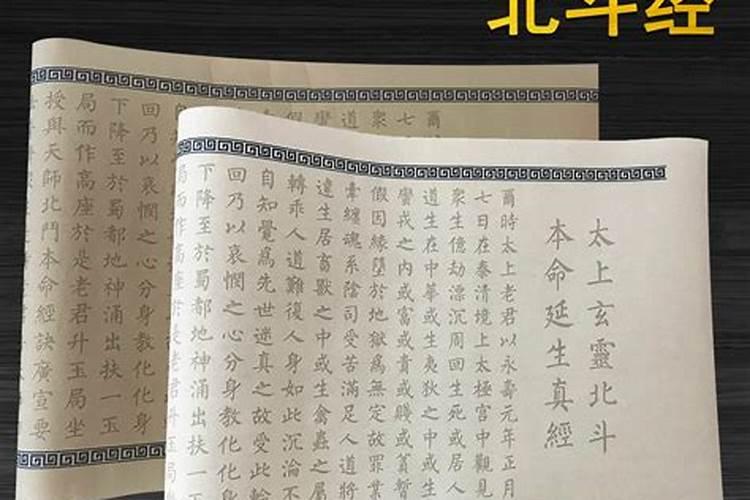 北斗经
太上玄靈北斗
本命延生真經
爾時太上老君以永壽元年正月
七日在泰清境上太極宮中觀見
衆生億劫漂沉周回生死或居人
道生在中華或生夷狄之中或生
蠻戎之內或富或貴或賤或暫
假因緣墮於地獄爲無定故罪業
牽纏魂系陰司受苦滿足人道將
違生居畜獸之中或生禽蟲之屬
轉乖人道難復人身如此沉淪不
自知覺爲先世迷真之故受此輪
回乃以哀憫之心分身教化化
下降至於蜀都地神涌出扶一
局而作高座於是老君升玉局
爾
七
衆
道
蠻
假
自
回乃以哀憫之心分身教化化身
下降至於蜀都地神涌出扶一玉
局而作高座於是老君升玉局坐
授與天師北鬥本命經訣廣宣要